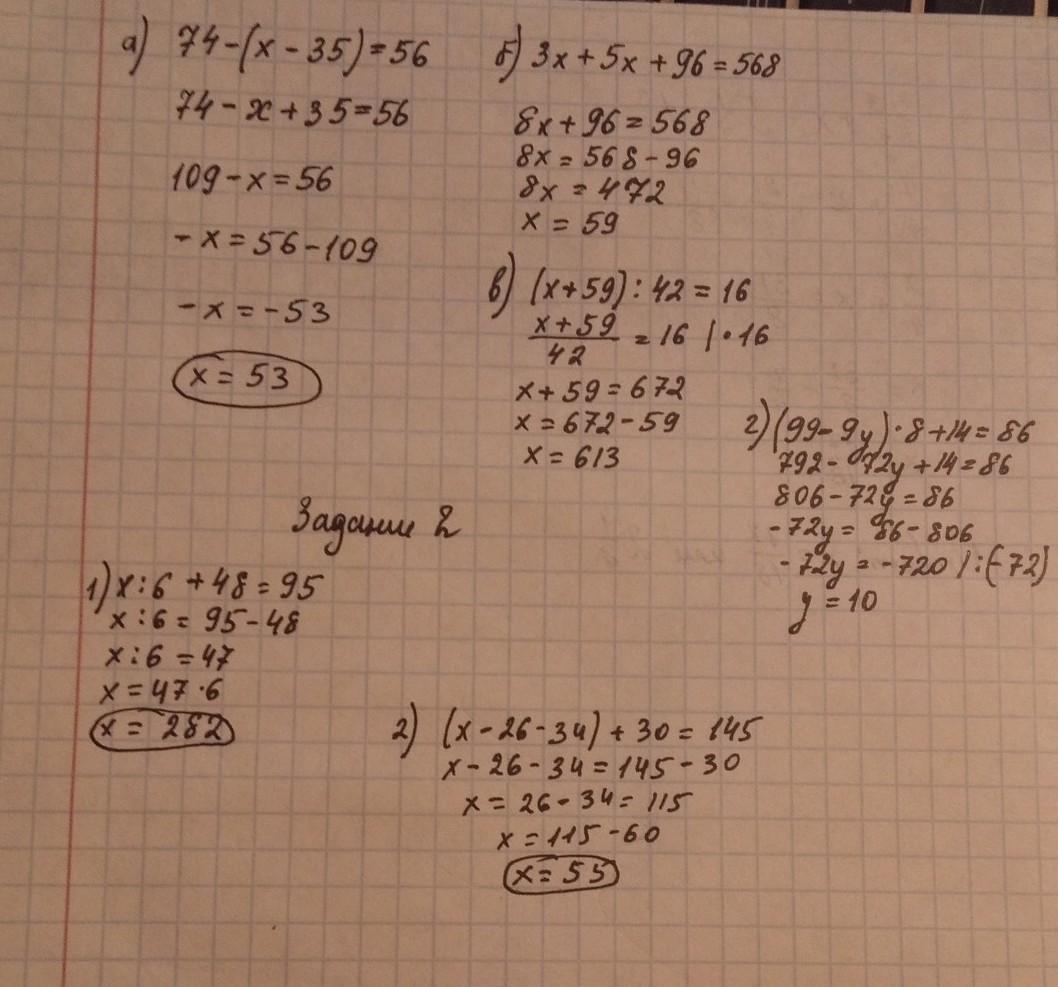 а) 74-(x-35)=56
74-x+35=56
109-x=56
-x=56-109
-x=-53
x=53
б) 3x+5x+96=568
8x+96=568
8x=568-96
8x=472
x=59
в) (x+59):42=16
x+59/42=16 |·16
x+59=672
x=672-59
x=613
г) (99-9y)·8+14=86
792-72y+14=86
806-72y=86
-72y=86-806
-72y=-720 |:(-72)
y=10
Задание 2
1) x:6+48=95
x:6=95-48
x:6=47
x=47·6
x=282
2) (x-26-34)+30=145
x-26-34=145-30
x=26-34=115
x=115-60
x=55